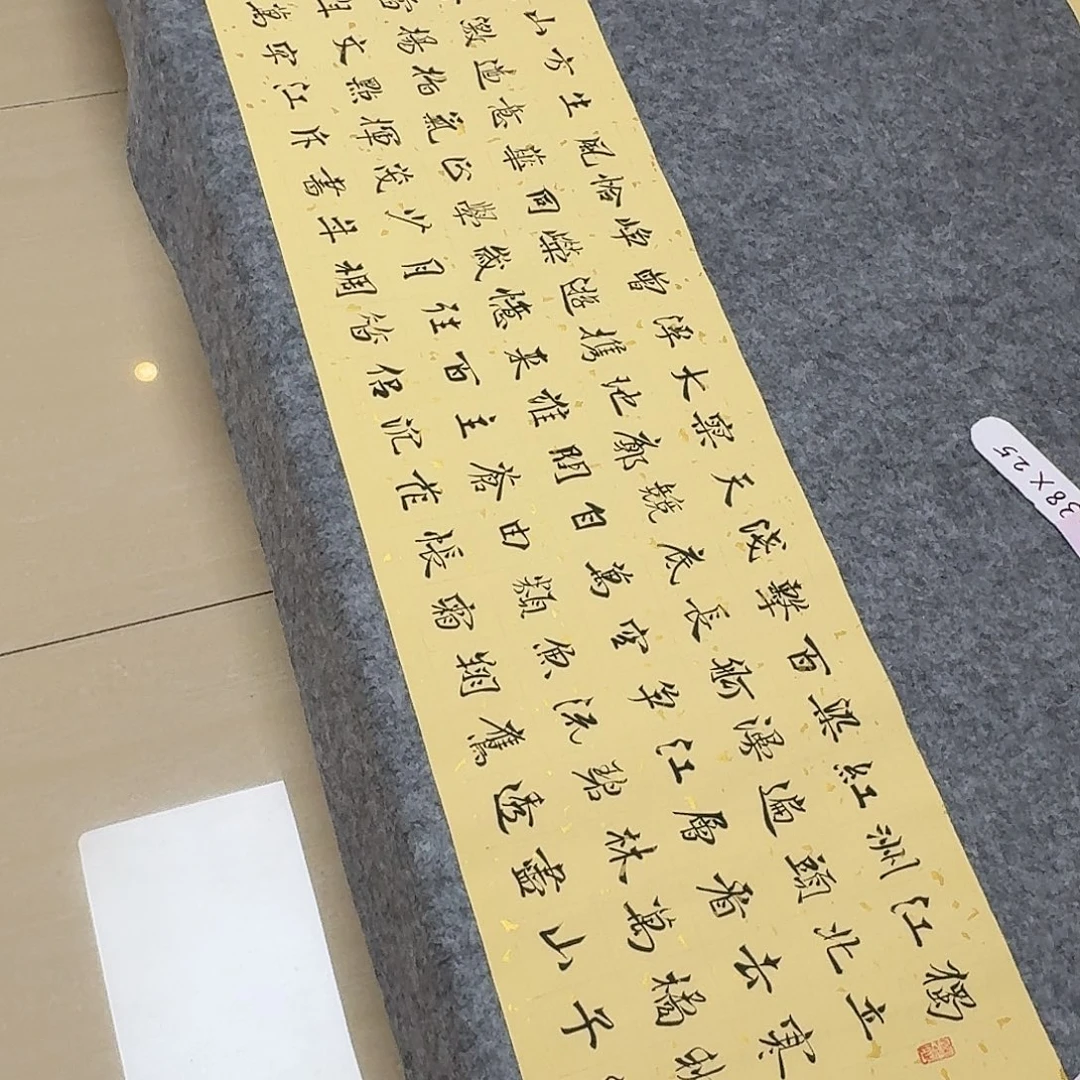 獨立寒秋
江北去橘子
洲頭看萬山
紅遍層林盡
染漫江碧透
百舸爭流鷹
擊長空魚翔
淺底萬類霜
天競自由悵
寥廓問蒼茫
大地誰主沉
浮攜來百侶
曾遊憶往昔
崢嶸歲月稠
恰同學少年
風華正茂書
生意氣揮斥
方遒指點江
山激揚文字
當年萬
38×25